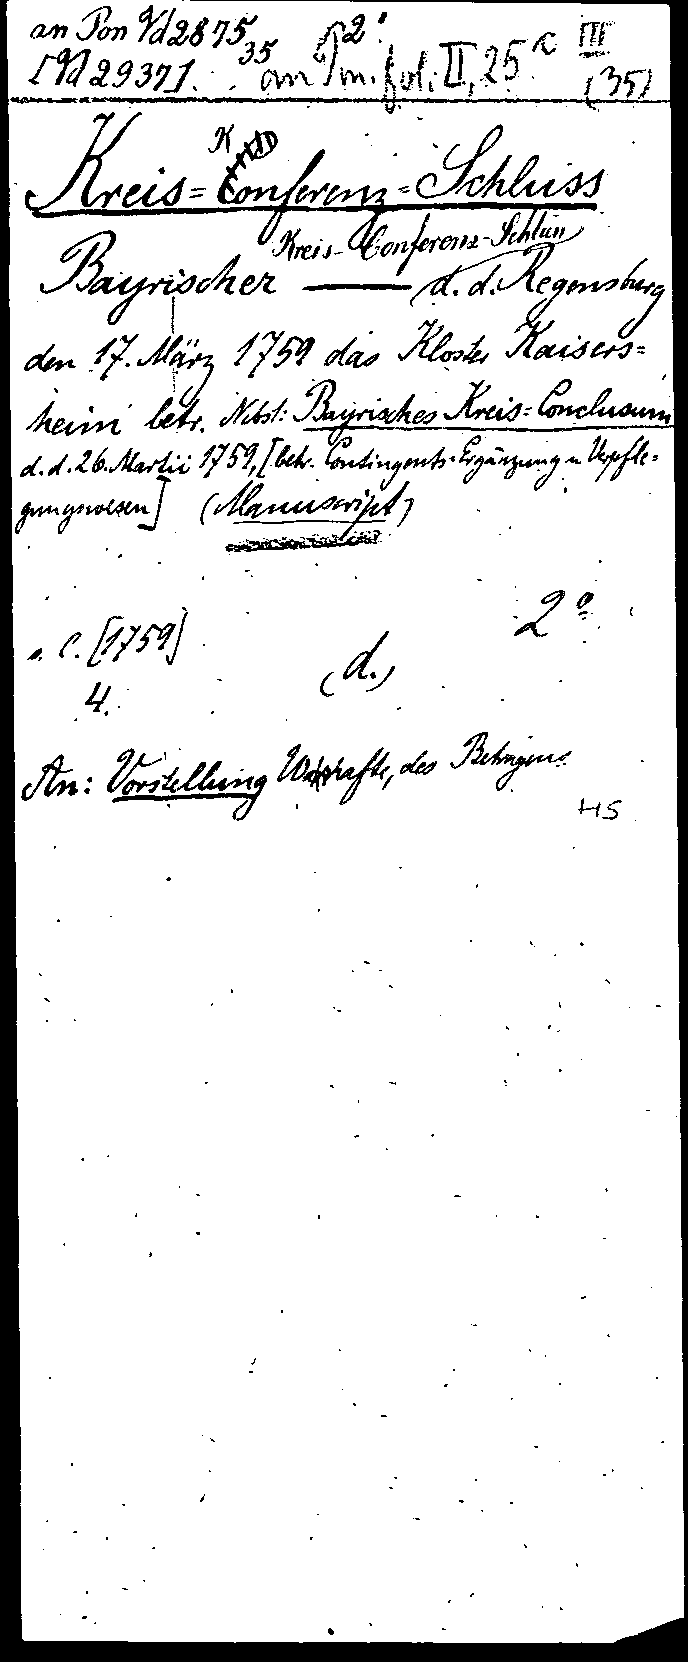 an Pon Vd 2875, 2°
[Vd 29371. 35 an Pon. fol. II, 25 c III (35)
K
Kreis=Conferenz=Schluss
Kreis-Conferenz-Schluss
Bayrischer —— d. d. Regensburg
den 17. März 1759 das Kloster Kaisers=
heim betr. Nebst: Bayrisches Kreis=Conclusum
d. d. 26. Martii 1759, [betr. Contingents=Ergänzung u Verpfle=
gungswesen] (Manuscript)
2°
s. l. [1759]
(d.)
4.
An: Vorstellung Wahrhafte, des Betragens
HS